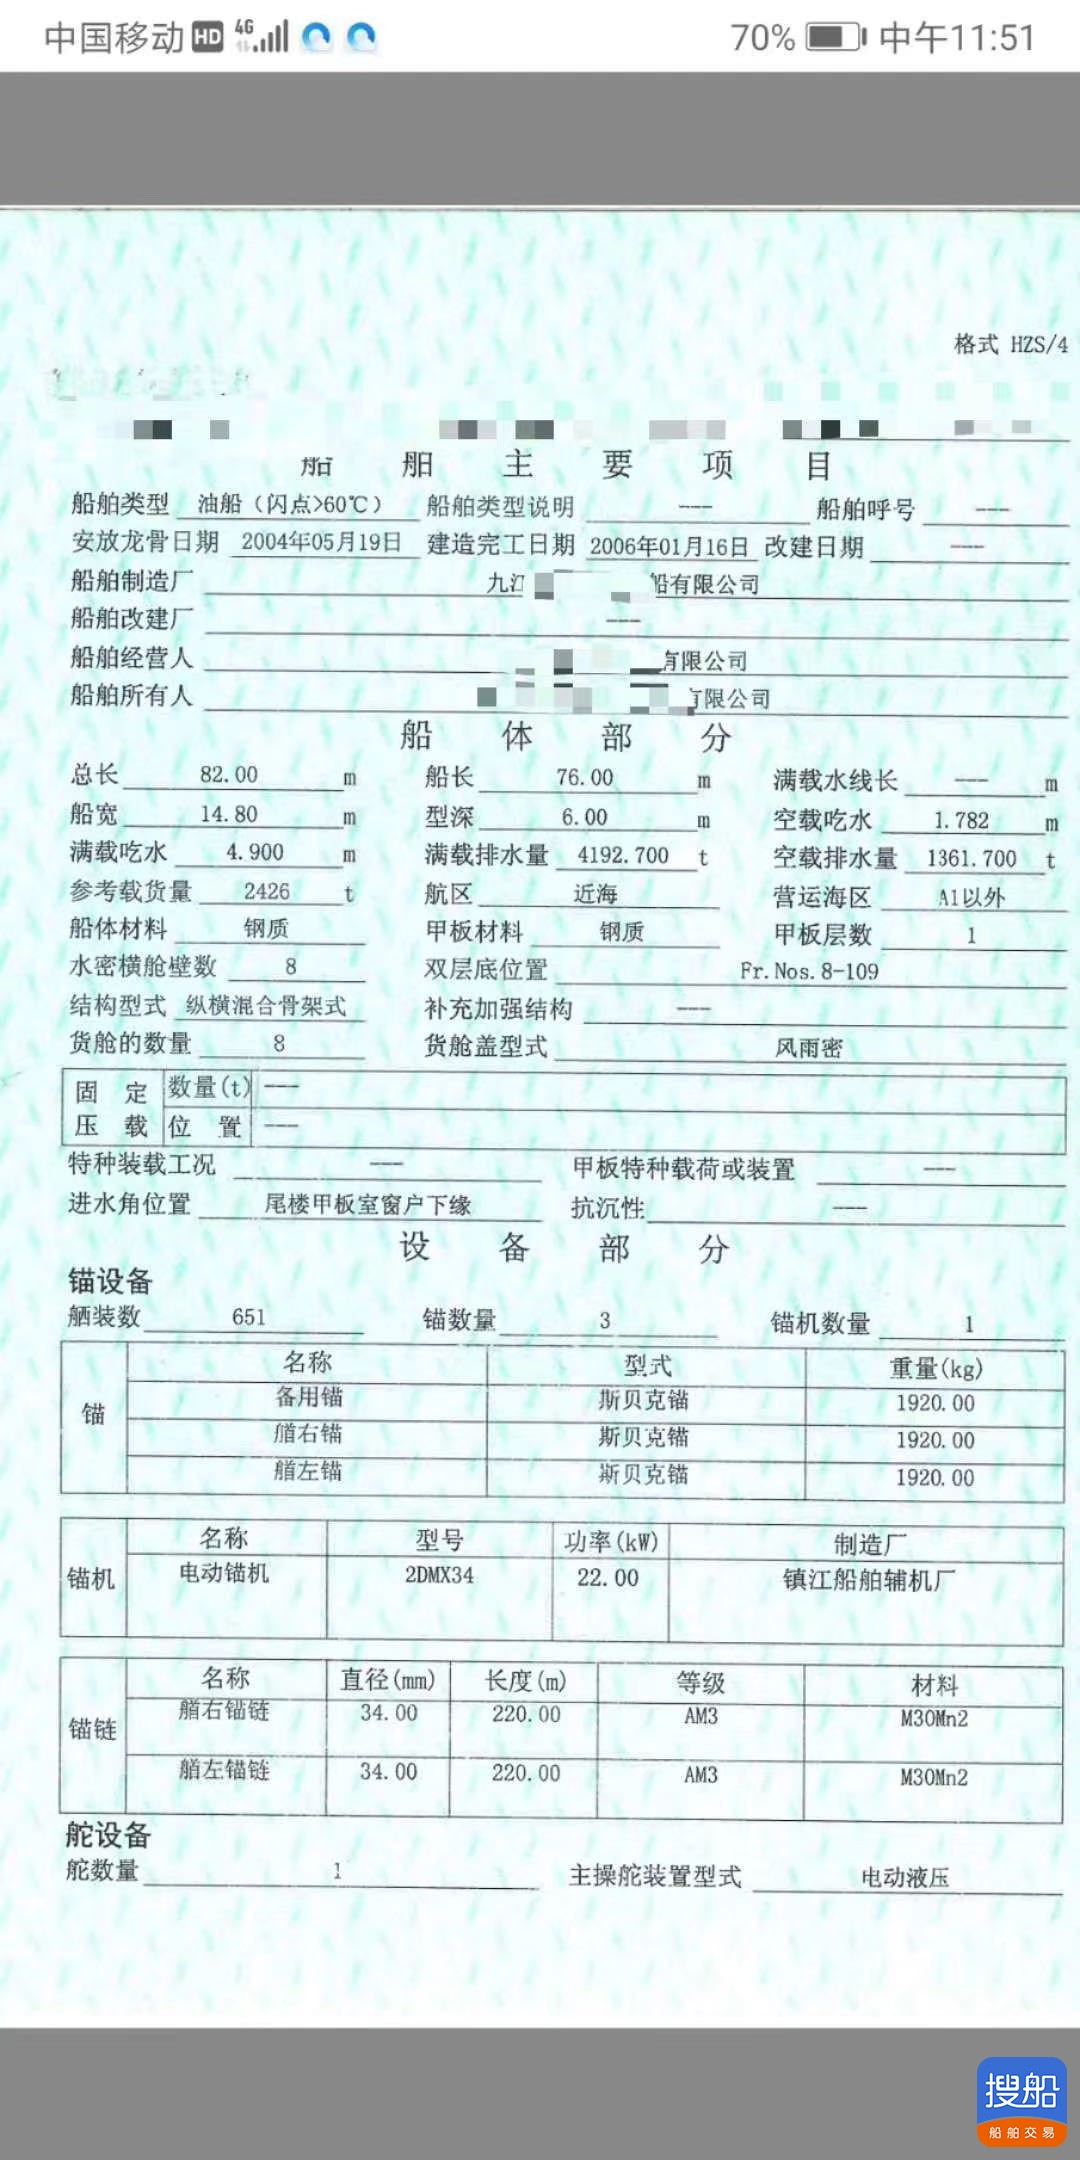 中国移动 HD 4G 70% 中午11:51
格式 HZS/4
船舶主要项目
船舶类型 油船（闪点>60℃） 船舶类型说明 --- 船舶呼号 ---
安放龙骨日期 2004年05月19日 建造完工日期 2006年01月16日 改建日期 ---
船舶制造厂 九江 船有限公司
船舶改建厂 ---
船舶经营人 有限公司
船舶所有人 有限公司
船体部分
总长 82.00 m 船长 76.00 m 满载水线长 --- m
船宽 14.80 m 型深 6.00 m 空载吃水 1.782 m
满载吃水 4.900 m 满载排水量 4192.700 t 空载排水量 1361.700 t
参考载货量 2426 t 航区 近海 营运海区 A1以外
船体材料 钢质 甲板材料 钢质 甲板层数 1
水密横舱壁数 8 双层底位置 Fr.Nos.8-109
结构型式 纵横混合骨架式 补充加强结构 ---
货舱的数量 8 货舱盖型式 风雨密
固定压载 数量(t) ---
位置 ---
特种装载工况 --- 甲板特种载荷或装置 ---
进水角位置 尾楼甲板室窗户下缘 抗沉性 ---
设备部分
锚设备
舾装数 651 锚数量 3 锚机数量 1
锚 名称 型式 重量(kg)
备用锚 斯贝克锚 1920.00
艏右锚 斯贝克锚 1920.00
艏左锚 斯贝克锚 1920.00
锚机 名称 型号 功率(kW) 制造厂
电动锚机 2DMX34 22.00 镇江船舶辅机厂
锚链 名称 直径(mm) 长度(m) 等级 材料
艏右锚链 34.00 220.00 AM3 M30Mn2
艏左锚链 34.00 220.00 AM3 M30Mn2
舵设备
舵数量 1 主操舵装置型式 电动液压
搜船
船舶交易